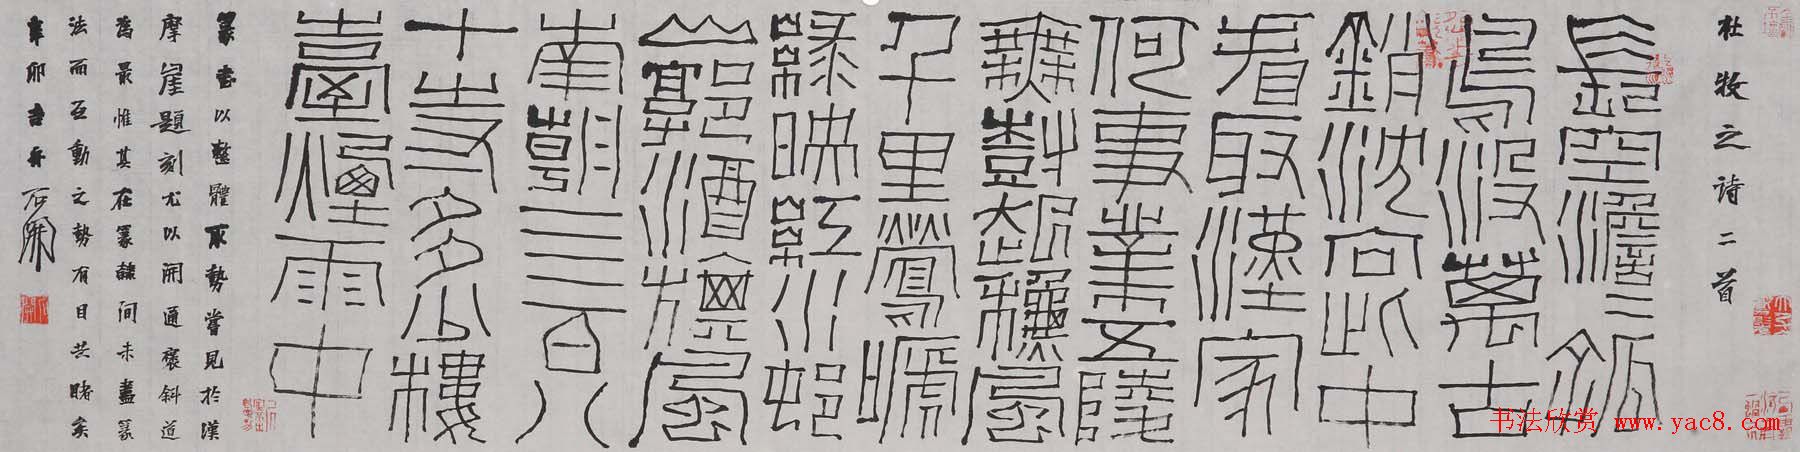 杜牧之诗二首
長空澹〻孤
鳥沒萬古
銷沈向此中
看取漢家
何事業五陵
無樹起秋風
千里鶯嗁
綠映紅水邨
山郭酒旗風
南朝亖百八
十寺多少樓
臺煙雨中
篆書以整體取勢嘗見於漢
摩崖題刻尤以開通褒斜道
為最惟其在篆隸間未盡篆
法而互動之勢有目共睹矣
辛卯吉月石開
书法欣赏 www.yac8.com